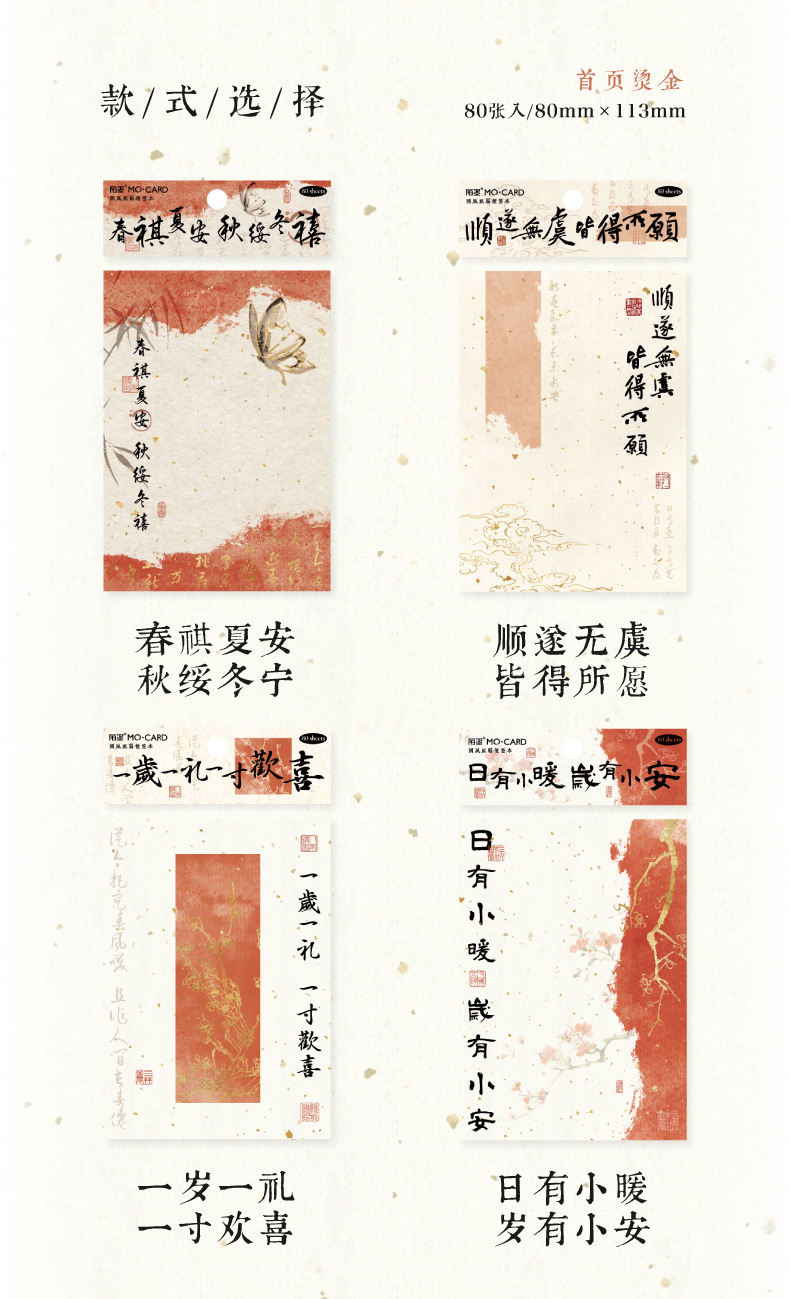 款/式/选/择
首页烫金
80张入/80mm×113mm
陌墨 MO·CARD
80 sheets
春祺夏安秋綏冬禧
春祺夏安 秋綏冬禧
春祺夏安
秋绥冬宁
陌墨 MO·CARD
80 sheets
順遂無虞皆得所願
順遂無虞
皆得所願
顺遂无虞
皆得所愿
陌墨 MO·CARD
80 sheets
一歲一礼一寸歡喜
一歲一礼 一寸歡喜
一岁一礼
一寸欢喜
陌墨 MO·CARD
80 sheets
日有小暖歲有小安
日有小暖 歲有小安
日有小暖
岁有小安